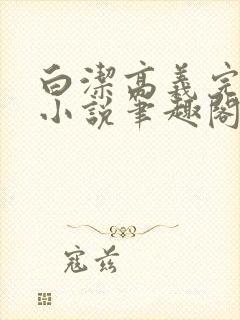 白潔高義完
小說筆趣閣
寇兹